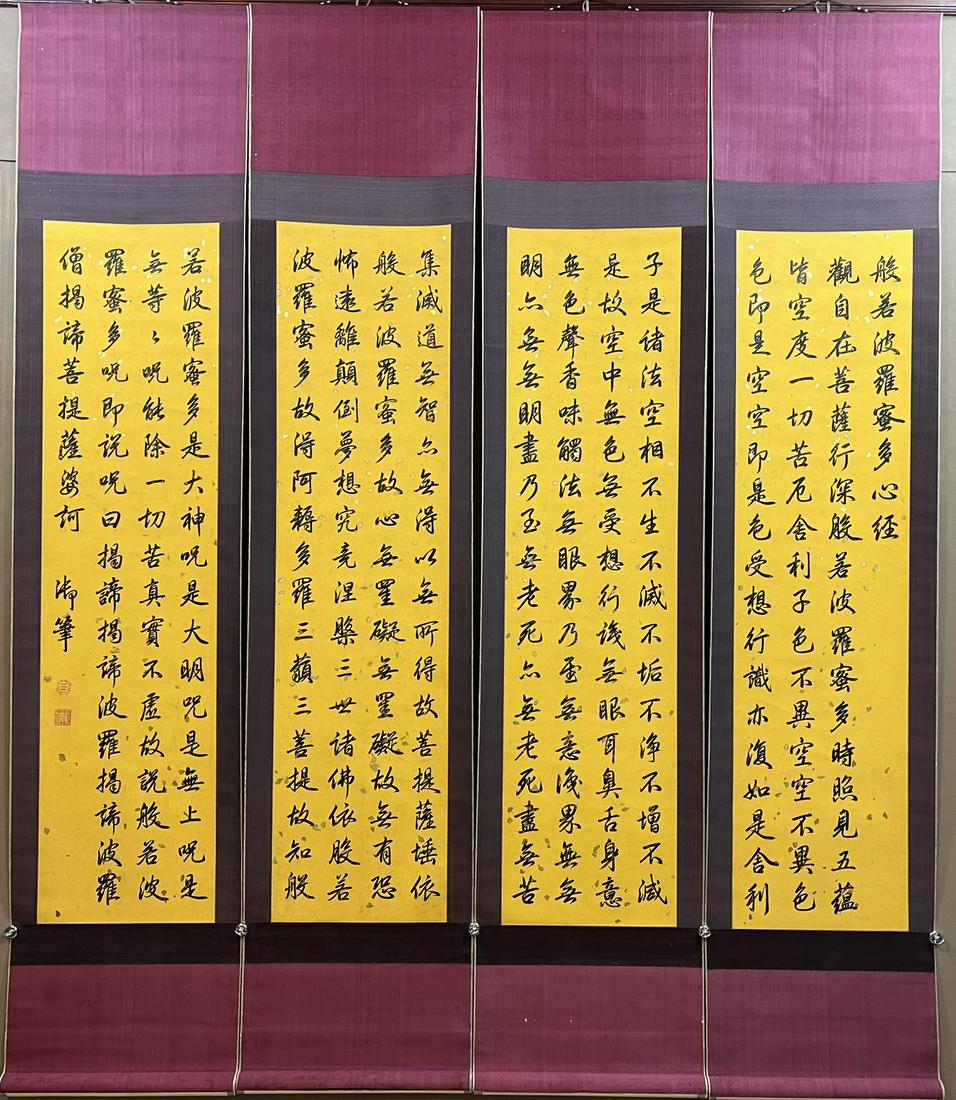 般若波羅蜜多心經
觀自在菩薩行深般若波羅蜜多時照見五蘊
皆空度一切苦厄舍利子色不異空空不異色
色即是空空即是色受想行識亦復如是舍利
子是諸法空相不生不滅不垢不淨不增不減
是故空中無色無受想行識無眼耳鼻舌身意
無色聲香味觸法無眼界乃至無意識界無無
明亦無無明盡乃至無老死亦無老死盡無苦
集滅道無智亦無得以無所得故菩提薩埵依
般若波羅蜜多故心無罣礙無罣礙故無有恐
怖遠離顛倒夢想究竟涅槃三世諸佛依般若
波羅蜜多故得阿耨多羅三藐三菩提故知般
若波羅蜜多是大神呪是大明呪是無上呪是
無等々呪能除一切苦真實不虛故說般若波
羅蜜多呪即說呪曰揭諦揭諦波羅揭諦波羅
僧揭諦菩提薩婆訶 御筆